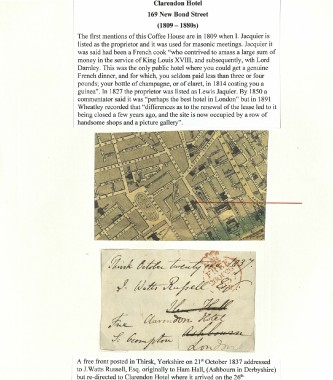 Clarendon Hotel
169 New Bond Street
(1809 – 1880s)
The first mentions of this Coffee House are in 1809 when I. Jacquier is
listed as the proprietor and it was used for masonic meetings. Jacquier it
was said had been a French cook "who contrived to amass a large sum of
money in the service of King Louis XVIII, and subsequently, wth Lord
Darnley. This was the only public hotel where you could get a genuine
French dinner, and for which, you seldom paid less than three or four
pounds; your bottle of champagne, or of claret, in 1814 costing you a
guinea". In 1827 the proprietor was listed as Lewis Jaquier. By 1850 a
commentator said it was "perhaps the best hotel in London" but in 1891
Wheatley recorded that "differences as to the renewal of the lease led to it
being closed a few years ago, and the site is now occupied by a row of
handsome shops and a picture gallery".
Thirsk October twenty one 1837
J. Watts Russell Esqre
Ham Hall
Clarendon Hotel
Free
Ashbourn
S. Crompton
London
A free front posted in Thirsk, Yorkshire on 21st October 1837 addressed
to J.Watts Russell, Esq. originally to Ham Hall, (Ashbourn in Derbyshire)
but re-directed to Clarendon Hotel where it arrived on the 26th